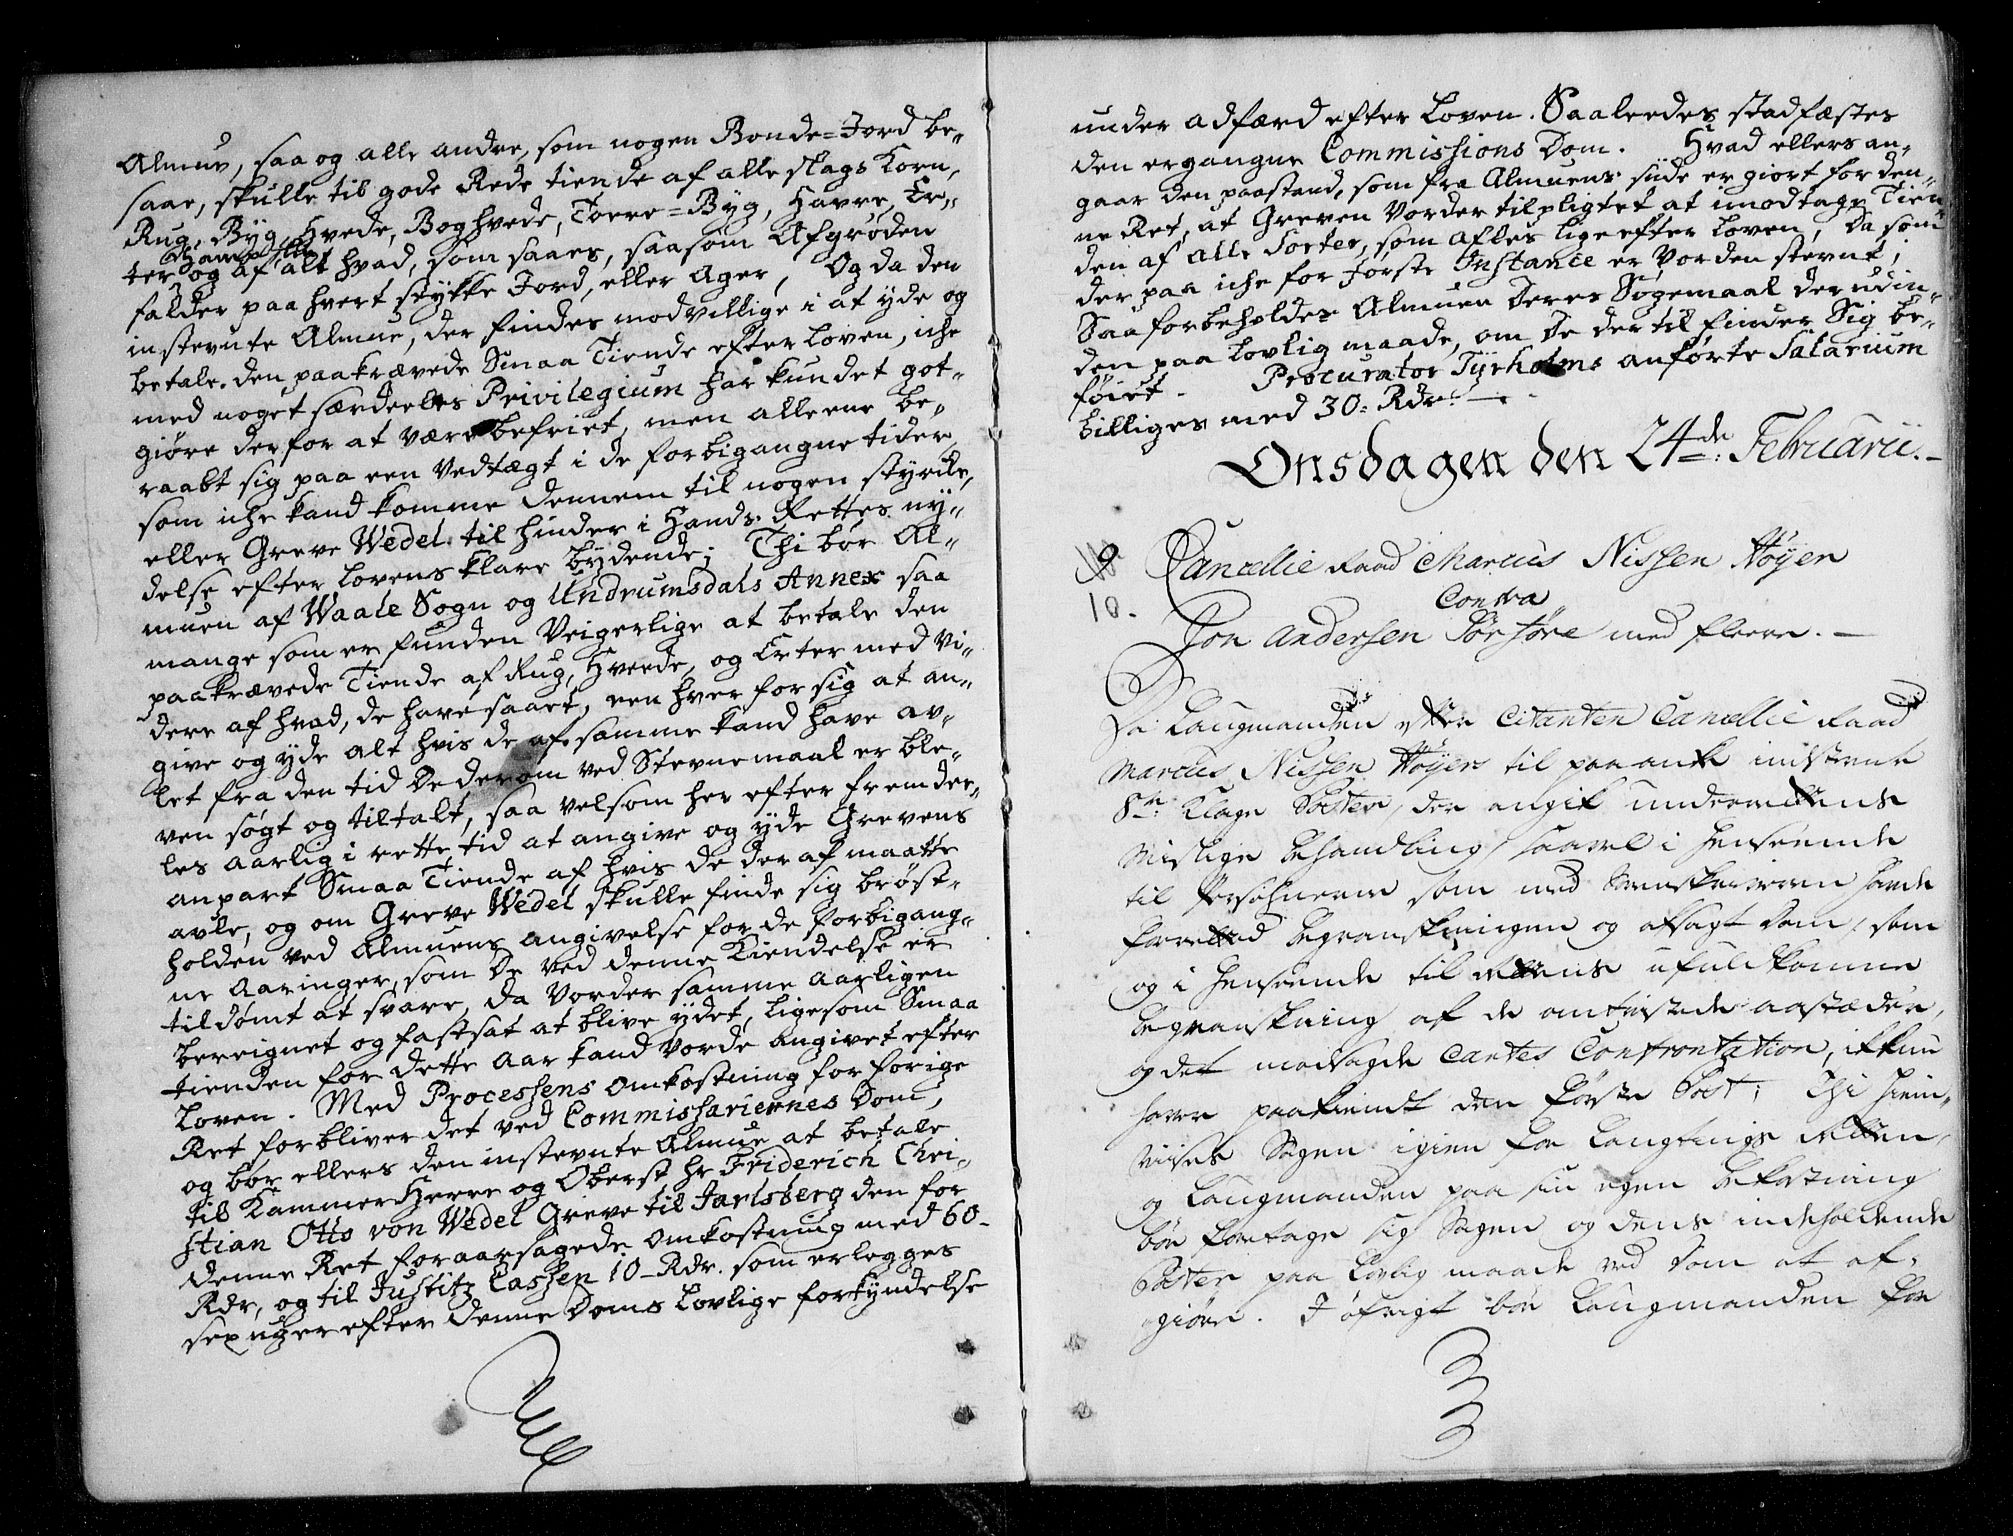 Almue, saa og alle andre, som nogen Bonde=Jord be-
saae, skulle til gode Rede tiende af alle slags Korn,
Rug, Byg, Hvede, Boghvede, Torre=Byg, Havre, Er-
ter, og af alt hvad, som saaes, saasom Afgrøden
falder paa hvert stykke Jord, eller Ager, Og da den
instevnte Almue, der findes modvillige i at yde og
betale den paakrævede Smaa Tiende efter Loven, iche
med noget særdeeles Privilegium har kundet got-
giøre derfor at være befriet, men alleene be-
raabt sig paa een Vedtægt i de forbigangne tider,
som iche kand komme dennem til nogen styrcke,
eller Greve Wedel til hinder i Hands Rettes ny-
delse efter Lovens klare bydende; Thi bør Al-
muen af Waale Sogn og Undrumsdals Annex saa
mange som er funden Veigerlige at betale den
paakrævede Tiende af Rug, Hvede, og Erter med vi-
dere af hvad, de have saaet, een hver for sig at an-
give og yde alt hvis de af samme kand have av-
let fra den tid De derom ved Stevnemaal er ble-
ven søgt og tiltalt, saa vel som her efter fremdee-
les aarlig i rette tid at angive og yde Grevens
anpart Smaa Tiende af hvis de deraf maatte
avle, og om Greve Wedel skulle finde sig brøst-
holden ved Almuens angivelse for de forbigang-
ne Aaringer, som De ved denne Kiendelse er
tildømt at svare, da Vorder samme aarligen
bereignet og fastsat at blive ydet, ligesom Smaa
tienden for dette Aar kand Vorde angivet efter
Loven. Med Processens Omkostning for forige
Ret forbliver det ved Commissariernes Dom,
og bør ellers den instevnte Almue at betale
til Kammer Herre og Oberst hr Friderich Chri-
stian Otto von Wedel Greve til Jarlsberg den for
denne Ret foraarsagede Omkostning med 60-
Rdr, og til Justitz Cassen 10-Rdr. som erlegges
sex uger efter denne Doms Lovlige forkyndelse
under adfærd efter Loven. Saaleedes stadfæstes
den ergangne Commissions Dom. Hvad ellers an-
gaar den paastand, som fra Almuens side er giort for den-
ne Ret, at Greven Vorder tilpligtet at imodtage Tien-
den af alle Sorter, som afles lige efter Loven, Da som
der paa iche for første Instance er Vorden stevnt;
Saa forbeholdes Almuen Deres Søgemaal der udin-
den paa Lovlig maade, om De der til finder Sig be-
føiet. Procurator Tyrholms anførte Salarium
billiges med 30: Rdr. —
Onsdagen den 24de Februarii. —
10.
Cancellie Raad Marcus Nissen Høyer
Contra
Jon Andersen med fleere. —
Da Laugmanden efter Citanten Cancellie Raad
Marcus Nissen Høyers til paaanke indstevnte
8de Klage Poster, der angik underrettens
mislige behandling saavel i henseende
til Persohnerne som med Sorenskriveren havde
forrettet begranskningen og afsagt Dom, som
og i henseende til Rettens ufuldkomne
begranskning af de omtvistede aastæder,
og det modsagde Cartes Confrontation, ikkun
haver paakiendt den første Post; Thi hiem-
viises Sagen igien for Laugtings Retten,
og Laugmanden paa sin egen bekostning
bør foretage sig Sagen og dens indeholdende
Poster paa lovlig maade ved Dom at af-
giøre. I øfrigt bør Laugmanden for